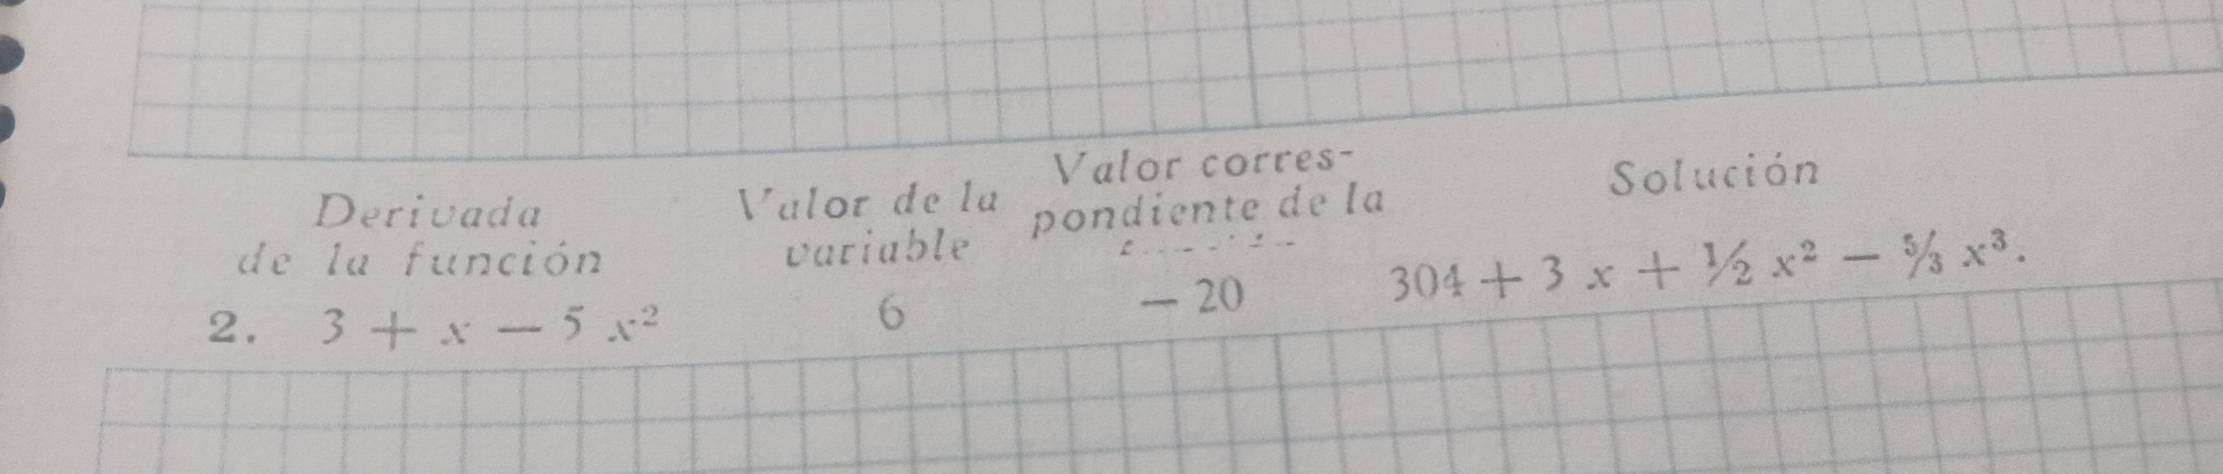 Derivada
de la función
Valor de la
variable
Valor corres-
pondiente de la
Solución
2. 3 + x − 5 x²
6
− 20
304 + 3 x + ½ x² − 5/3 x³.